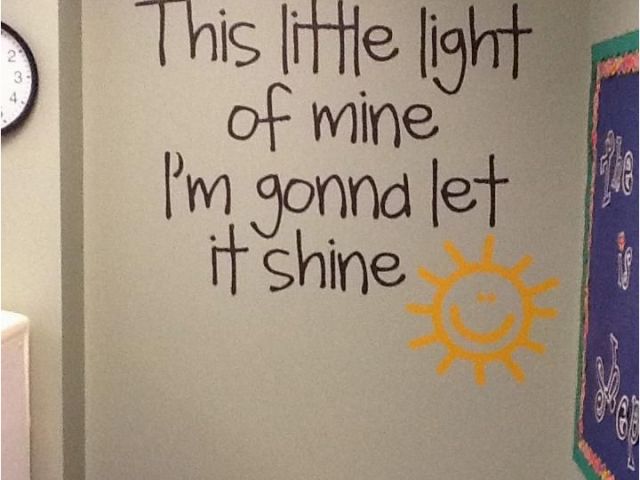 This little light
of mine
I'm gonna let
it shine
2
3
4
The
is